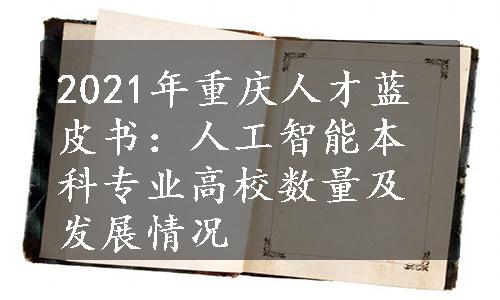 2021年重庆人才蓝
皮书：人工智能本
科专业高校数量及
发展情况